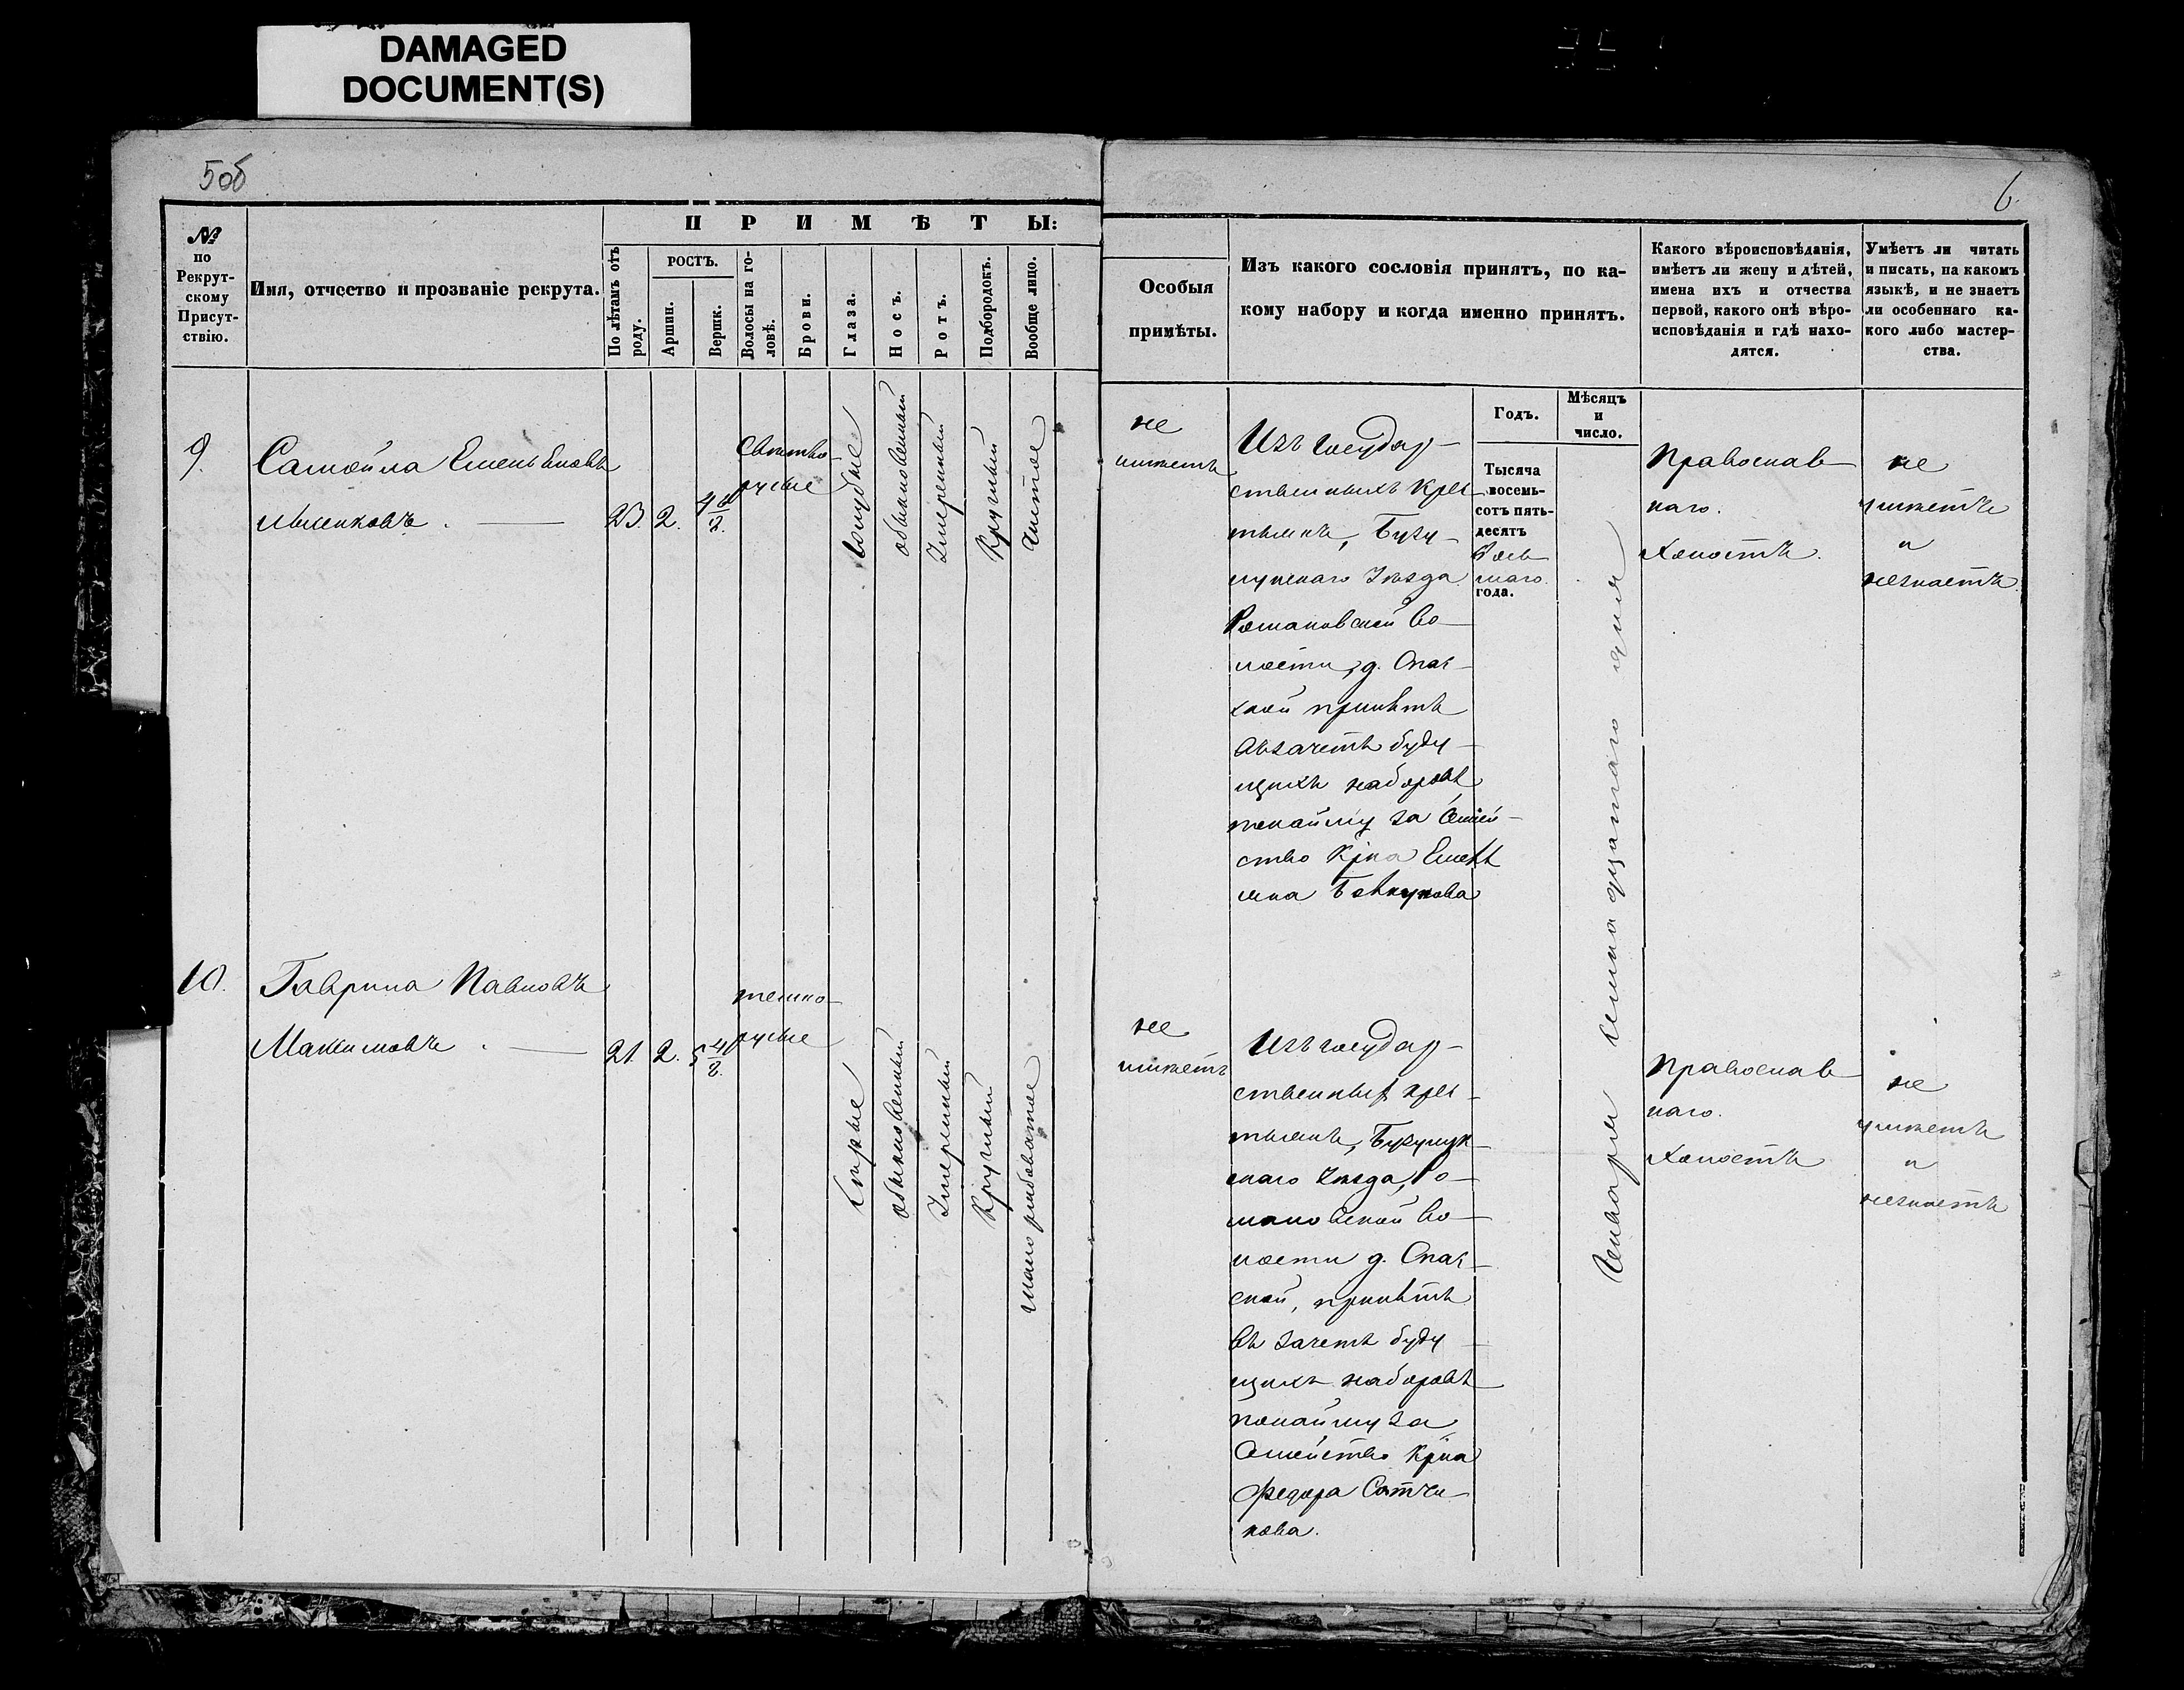 DAMAGED
DOCUMENT(S)
5 об
6.
№
по
Рекрут-
скому
Присут-
ствію.
Имя, отчество и прозваніе рекрута.
ПРИМѢТЫ:
По лѣтамъ отъ
роду.
РОСТЪ.
Аршин.
Вершк.
Волосы на го-
ловѣ.
Брови.
Глаза.
Носъ.
Ротъ.
Подбородокъ.
Вообще лицо.
Особыя
примѣты.
Изъ какого сословія принятъ, по ка-
кому набору и когда именно принятъ.
Годъ.
Мѣсяцъ
и
число.
Какого вѣроисповѣданія,
имѣетъ ли жену и дѣтей,
имена ихъ и отчества
первой, какого онѣ вѣро-
исповѣданія и гдѣ нахо-
дятся.
Умѣетъ ли читать
и писать, на какомъ
языкѣ, и не знаетъ
ли особеннаго ка-
кого либо мастер-
ства.
9.
Самойла Емельяновъ
23. 2. 4 6/8.
свѣтло-
русые
голубые
обыкновенный
умеренный
круглый
чистое
не
имѣетъ
Изъ государ-
ственныхъ кресь-
тьянъ, Бузу-
лукскаго уѣзда
Романовской во-
лости, д. Спас-
ской принятъ
въ зачетъ буду-
щихъ наборовъ
по найму за семей-
ство кр-на Емель
яна
Тысяча
восемь-
сотъ пять-
десятъ
вось-
маго
года.
Генваря одинадцатаго дня
Православ-
наго.
Холостъ.
не
умѣетъ
и
незнаетъ.
10.
Гаврила Павловъ
Максимовъ.
21. 2. 5 4/8.
темно-
русые
серые
обыкновенный
умеренный
круглый
мало рябоватое
не
имѣетъ
Изъ государ-
ственныхъ кресь-
тьянъ, Бузулук-
скаго уѣзда, Ро-
мановской во-
лости д. Спас-
ской, принятъ
въ зачетъ буду-
щихъ наборовъ
по найму за
семейство кр-на
Федора
Православ-
наго.
Холостъ
не
умѣетъ
и
незнаетъ